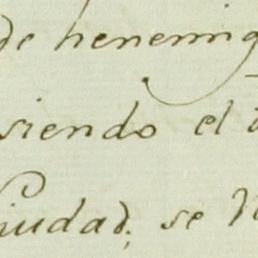 de henemig
siendo el
Ciudad, se